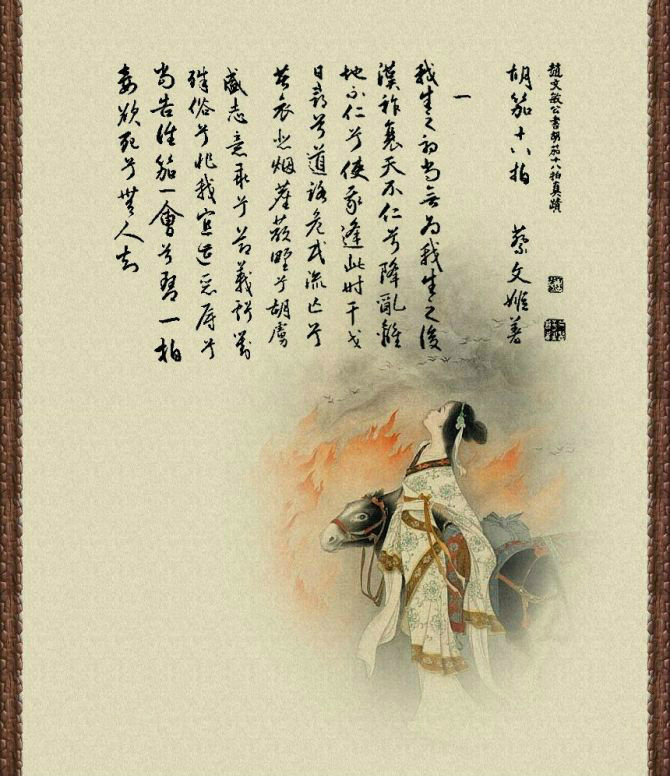 趙文敏公書胡笳十八拍真蹟
胡笳十八拍 蔡文姬著
一
我生之初尚無為我生之後
漢祚衰天不仁兮降亂離
地不仁兮使我逢此時干戈
日尋兮道路危民流亡兮
共哀悲烟塵蔽野兮胡虜
盛志意乖兮節義虧對
殊俗兮非我宜遭惡辱兮
當告誰笳一會兮琴一拍
欲死兮無人知